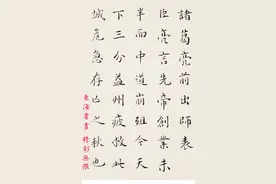 諸葛亮前出師表
臣亮言先帝創業未
半而中道崩殂今天
下三分益州疲敝此
誠危急存亡之秋也
東海書畫 精彩無限